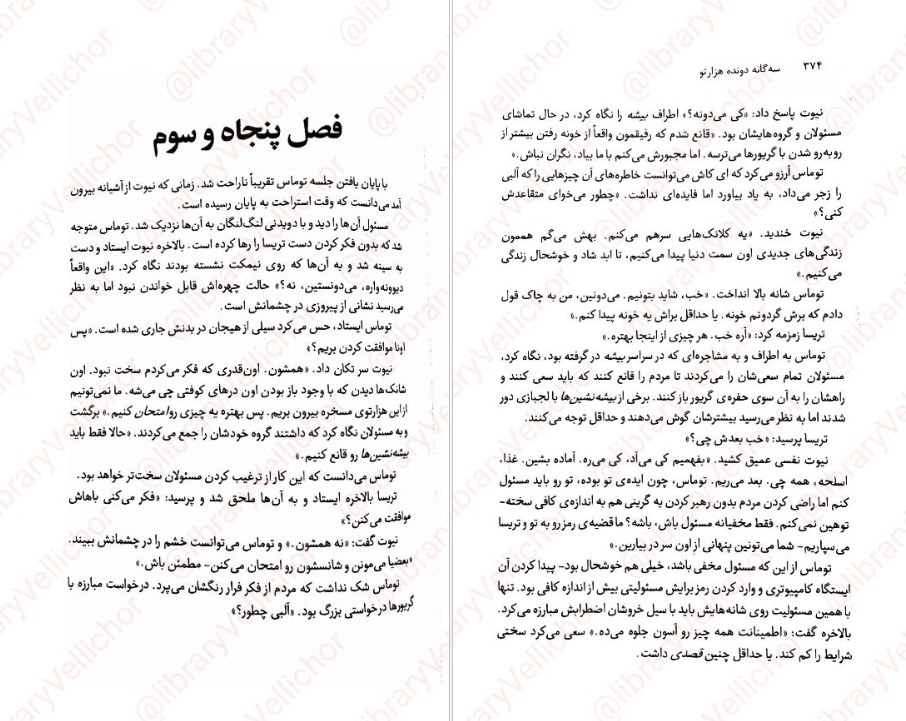 فصل پنجاه و سوم
با پایان یافتن جلسه توماس تقریباً ناراحت شد. زمانی که نیوت از آشیانه بیرون
آمد می‌دانست که وقت استراحت به پایان رسیده است.
مسئول آن‌ها را دید و با دویدنی لنگ‌لنگان به آن‌ها نزدیک شد. توماس متوجه
شد که بدون فکر کردن دست تریسا را رها کرده است. بالاخره نیوت ایستاد و دست
به سینه شد و به آن‌ها که روی نیمکت نشسته بودند نگاه کرد. «این واقعاً
دیوونه‌واره، می‌دونستین، نه؟» حالت چهره‌اش قابل خواندن نبود اما به نظر
می‌رسید نشانی از پیروزی در چشمانش است.
توماس ایستاد، حس می‌کرد سیلی از هیجان در بدنش جاری شده است. «پس
اونا موافقت کردن بریم؟»
نیوت سر تکان داد. «همشون. اون‌قدری که فکر می‌کردم سخت نبود. اون
شانک‌ها دیدن که با وجود باز بودن اون درهای کوفتی چی می‌شه. ما نمی‌تونیم
از این هزارتوی مسخره بیرون بریم. پس بهتره یه چیزی رو امتحان کنیم.» برگشت
و به مسئولان نگاه کرد که داشتند گروه خودشان را جمع می‌کردند. «حالا فقط باید
بیشه‌نشین‌ها رو قانع کنیم.»
توماس می‌دانست که این کار از ترغیب کردن مسئولان سخت‌تر خواهد بود.
تریسا بالاخره ایستاد و به آن‌ها ملحق شد و پرسید: «فکر می‌کنی باهاش
موافقت می‌کنن؟»
نیوت گفت: «نه همشون.» و توماس می‌توانست خشم را در چشمانش ببیند.
«بعضیا می‌مونن و شانسشون رو امتحان می‌کنن- مطمئن باش.»
توماس شک نداشت که مردم از فکر فرار رنگشان می‌پرد. درخواست مبارزه با
گریورها درخواستی بزرگ بود. «آلبی چطور؟»
۳۷۴ سه‌گانه دونده هزارتو
نیوت پاسخ داد: «کی می‌دونه؟» اطراف بیشه را نگاه کرد، در حال تماشای
مسئولان و گروه‌هایشان بود. «قانع شدم که رفیقمون واقعاً از خونه رفتن بیشتر از
روبه‌رو شدن با گریورها می‌ترسه. اما مجبورش می‌کنم با ما بیاد، نگران نباش.»
توماس آرزو می‌کرد که ای کاش می‌توانست خاطره‌های آن چیزهایی را که آلبی
را زجر می‌داد، به یاد بیاورد اما فایده‌ای نداشت. «چطور می‌خوای متقاعدش
کنی؟»
نیوت خندید. «یه کلانک‌هایی سرهم می‌کنم. بهش می‌گم هممون
زندگی‌های جدیدی اون سمت دنیا پیدا می‌کنیم، تا ابد شاد و خوشحال زندگی
می‌کنیم.»
توماس شانه بالا انداخت. «خب، شاید بتونیم. می‌دونین، من به چاک قول
دادم که برش گردونم خونه. یا حداقل براش یه خونه پیدا کنم.»
تریسا زمزمه کرد: «آره خب. هر چیزی از اینجا بهتره.»
توماس به اطراف و به مشاجره‌ای که در سراسر بیشه در گرفته بود، نگاه کرد،
مسئولان تمام سعی‌شان را می‌کردند تا مردم را قانع کنند که باید سعی کنند و
راهشان را به آن سوی حفره‌ی گریور باز کنند. برخی از بیشه‌نشین‌ها با لجبازی دور
شدند اما به نظر می‌رسید بیشترشان گوش می‌دهند و حداقل توجه می‌کنند.
تریسا پرسید: «خب بعدش چی؟»
نیوت نفسی عمیق کشید. «بفهمیم کی می‌آد، کی می‌ره. آماده بشین. غذا،
اسلحه، همه چی. بعد می‌ریم. توماس، چون ایده‌ی تو بوده، تو رو باید مسئول
کنم اما راضی کردن مردم بدون رهبر کردن یه گرینی هم به اندازه‌ی کافی سخته-
توهین نمی‌کنم. فقط مخفیانه مسئول باش، باشه؟ ما قضیه‌ی رمز رو به تو و تریسا
می‌سپاریم- شما می‌تونین پنهانی از اون سر در بیارین.»
توماس از این که مسئول مخفی باشد، خیلی هم خوشحال بود- پیدا کردن آن
ایستگاه کامپیوتری و وارد کردن رمز برایش مسئولیتی بیش از اندازه کافی بود. تنها
با همین مسئولیت روی شانه‌هایش باید با سیل خروشان اضطرابش مبارزه می‌کرد.
بالاخره گفت: «اطمینانت همه چیز رو آسون جلوه می‌ده.» سعی می‌کرد سختی
شرایط را کم کند. یا حداقل چنین قصدی داشت.
@libraryVellichor